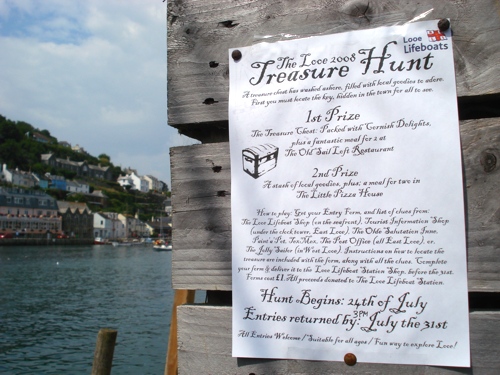 Looe
Lifeboats
The Looe 2008
Treasure Hunt
A treasure chest has washed ashore, filled with local goodies to adore.
First you must locate the key, hidden in the town for all to see.
1st Prize
The Treasure Chest: Packed with Cornish Delights,
plus a fantastic meal for 2 at
The Old Sail Loft Restaurant
2nd Prize
A stash of local goodies, plus; a meal for two in
The Little Pizza House
How to play: Get your Entry Form, and list of clues from:
The Looe Lifeboat Shop (on the seafront), Tourist Information Shop
(under the clock tower, East Looe), The Olde Salutation Inne,
The Post Office (all East Looe), or,
The Jolly Sailor (in West Looe). Instructions on how to locate the
treasure are included with the form, along with all the clues. Complete
your form & deliver it to the Looe Lifeboat Station Shop, before the 31st.
Forms cost £1. All proceeds donated to The Looe Lifeboat Station.
Hunt Begins: 24th of July
Entries returned by: 3PM July the 31st
All Entries Welcome / Suitable for all ages / Fun way to explore Looe!